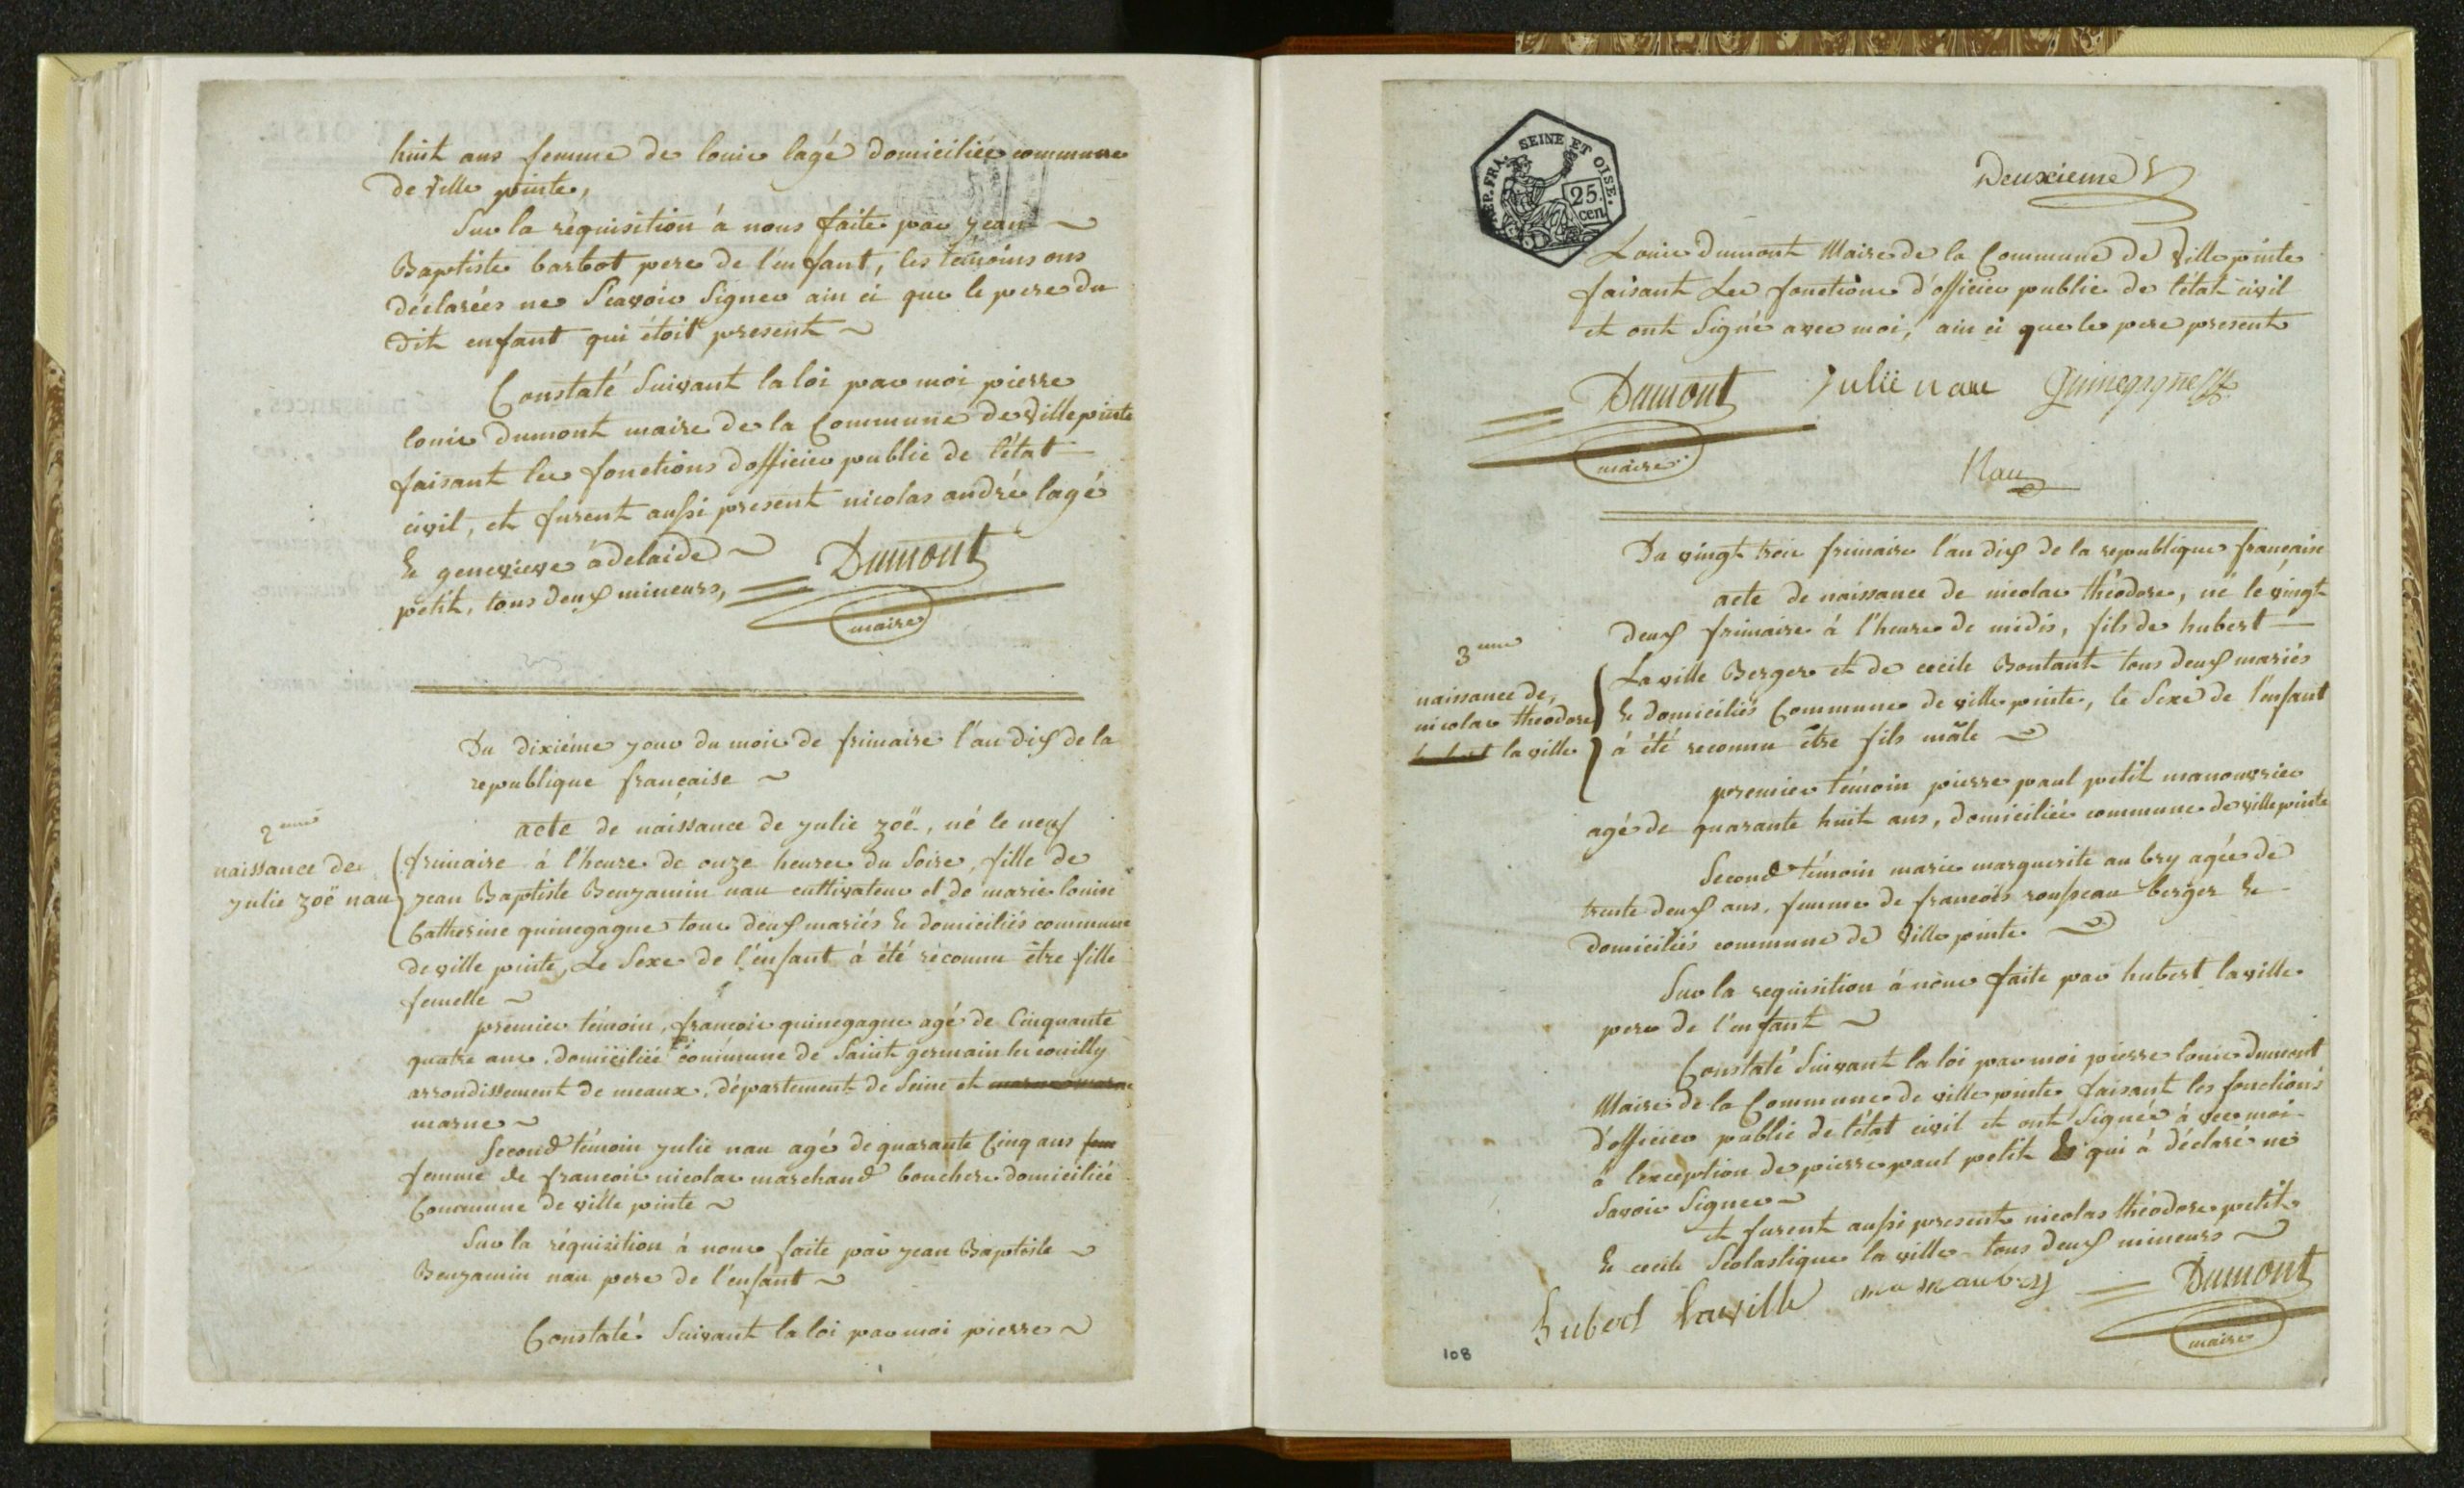 huit ans femme de louis lagé domiciliée commune
de ville pinte,
Sur la réquisition à nous faite par jean
Baptiste barbot pere de l'enfant, les témoins ons
déclarées ne Scavoir Signer ain ci que le pere du
dit enfant qui étoit present
Constaté Suivant la loi par moi pierre
louis dumont maire de la Commune de Villepinte
faisant les fonctions dofficier public de l'état
civil, et furent aussi present nicolas andré lagé
& genevieve àdelaide
petit, tous deux mineurs,
Dumont
maire
Du dixiéme jour du mois de frimaire l'an dix de la
republique française
2eme
naissance de
julie zoë nau
acte de naissance de julie zoë, né le neuf
frimaire à l'heure de onze heures du Soire, fille de
jean Baptiste Benjamin nau cultivateur et de marie louise
Catherine quinegagne tous deux mariés & domiciliés commune
de ville pinte, Le Sexe de l'enfant à été réconnu être fille
femelle
premier témoin, francois quinegagne agé de Cinquante
quatre ans domiciliée commune de Saint germain les couilly
arrondissement de meaux, département de Seine et marne marne
marne
Second témoin julie nau agé de quarante Cinq ans fem
femme de francois nicolas marchand bouchere domiciliée
Commune de ville pinte
Sur la réquisition à nous faite par jean Baptiste
Benjamin nau pere de l'enfant
Constaté Suivant la loi par moi pierre
REP. FRA. SEINE ET OISE.
25.
cen.
Deuxieme
Louis dumont Maire de la Commune de Villepinte
faisant Les fonctions d'officier public de l'état civil
et ont Signé avec moi, ain ci que le pere present
Dumont
julii nau
Quinegagne
maire
Nau
Du vingt trois frimaire l'an dix de la republique française
acte de naissance de nicolas théodore, né le vingt
deux frimaire à l'heure de midis, fils de hubert
3eme
naissance de,
nicolas théodore
hubert laville
Laville Berger et de cecile Bontant tous deux mariés
& domiciliés Commune de villepinte, le Sexe de l'enfant
à été reconnu être fils mâle
premier témoin pierre paul petit manouvrier
agé de quarante huit ans, domiciliée commune de villepinte
Second témoin marie marguerite au bry agée de
trente deux ans, femme de francois rousseau berger &
domiciliés commune de Villepinte
Sur la requisition à nous faite par hubert laville
pere de l'enfant
Constaté Suivant la loi par moi pierre louis dumont
Maire de la Commune de villepinte faisant les fonctions
d'officier public de l'état civil et ont Signée à vec moi
à l'exception de pierre paul petit & qui à déclaré ne
Savoir Signer
et furent aussi present nicolas théodore petit
& cecile Scolastique la ville tous deux mineurs
hubert laville
Dumont
maire
108